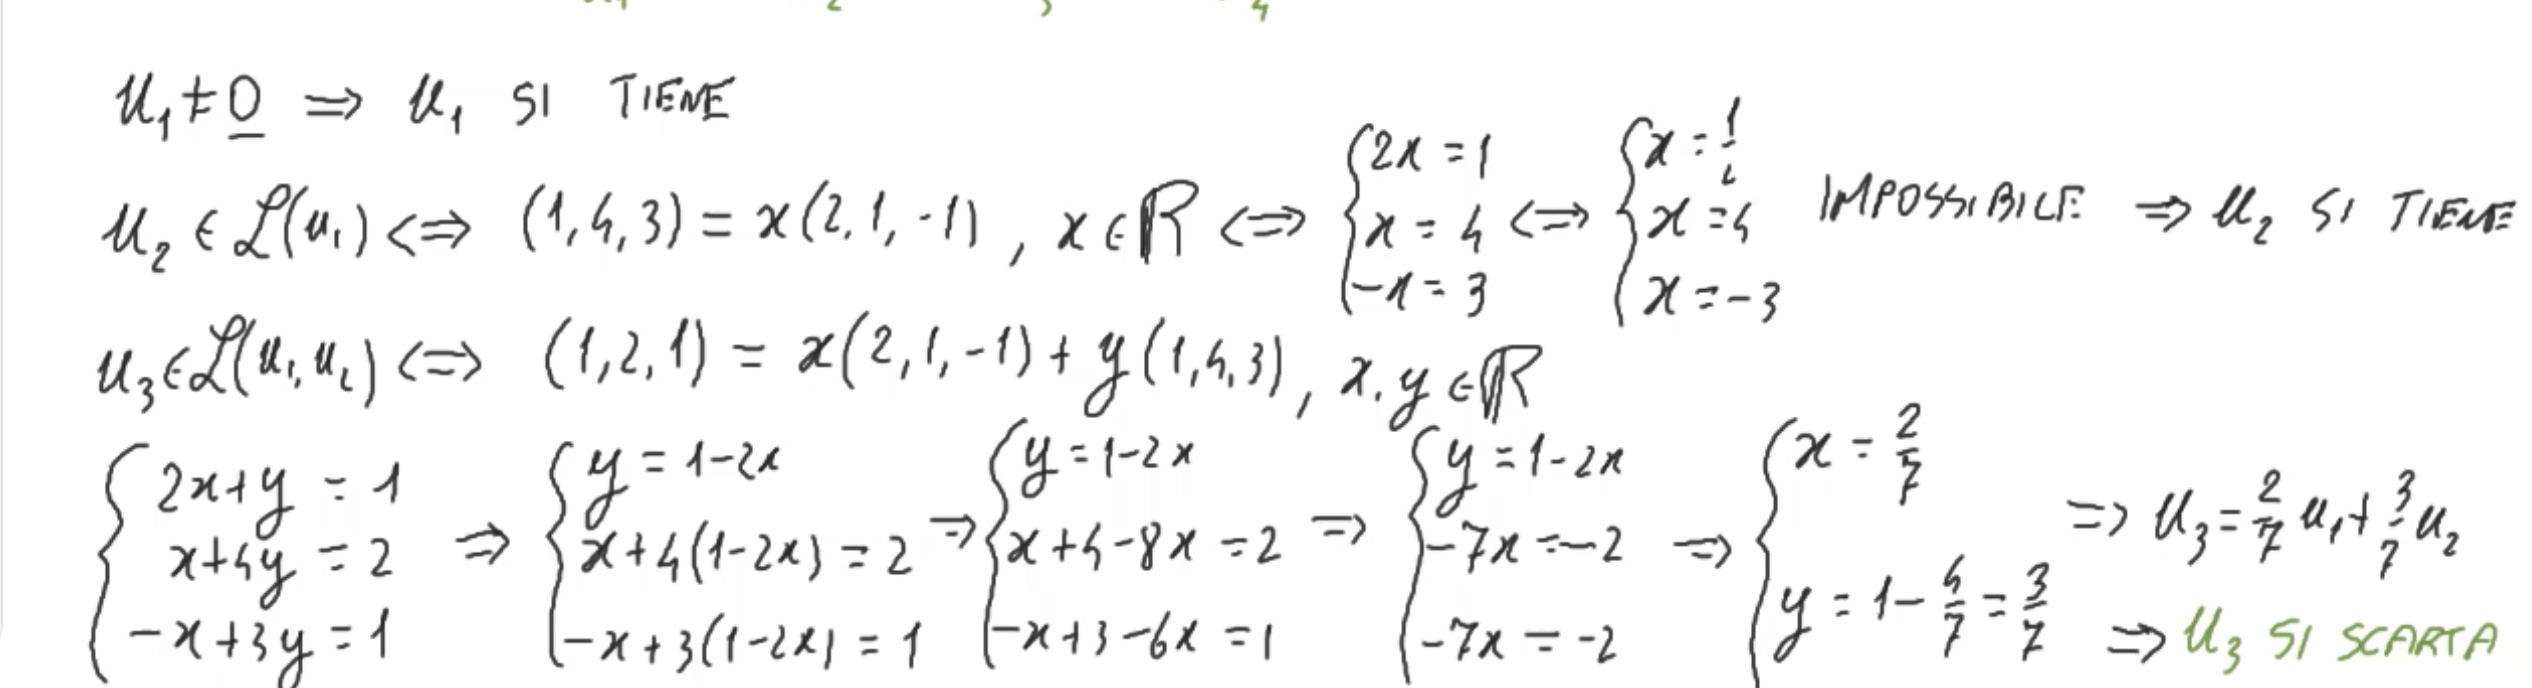 u₁ ≠ 0 ⇒ u₁ SI TIENE
u₂ ∈ ℒ(u₁) ⇔ (1,4,3) = x(2,1,-1), x ∈ ℝ ⇔ { 2x = 1 x = 4 -x = 3 ⇔ { x = 1/2 x = 4 x = -3 IMPOSSIBILE ⇒ u₂ SI TIENE
u₃ ∈ ℒ(u₁,u₂) ⇔ (1,2,1) = x(2,1,-1) + y(1,4,3), x,y ∈ ℝ
{ 2x+y = 1 x+4y = 2 -x+3y = 1 ⇒ { y = 1-2x x+4(1-2x) = 2 -x+3(1-2x) = 1 ⇒ { y = 1-2x x+4-8x = 2 -x+3-6x = 1 ⇒ { y = 1-2x -7x = -2 -7x = -2 ⇒ { x = 2/7 y = 1-4/7 = 3/7 ⇒ u₃ = 2/7 u₁ + 3/7 u₂
⇒ u₃ SI SCARTA